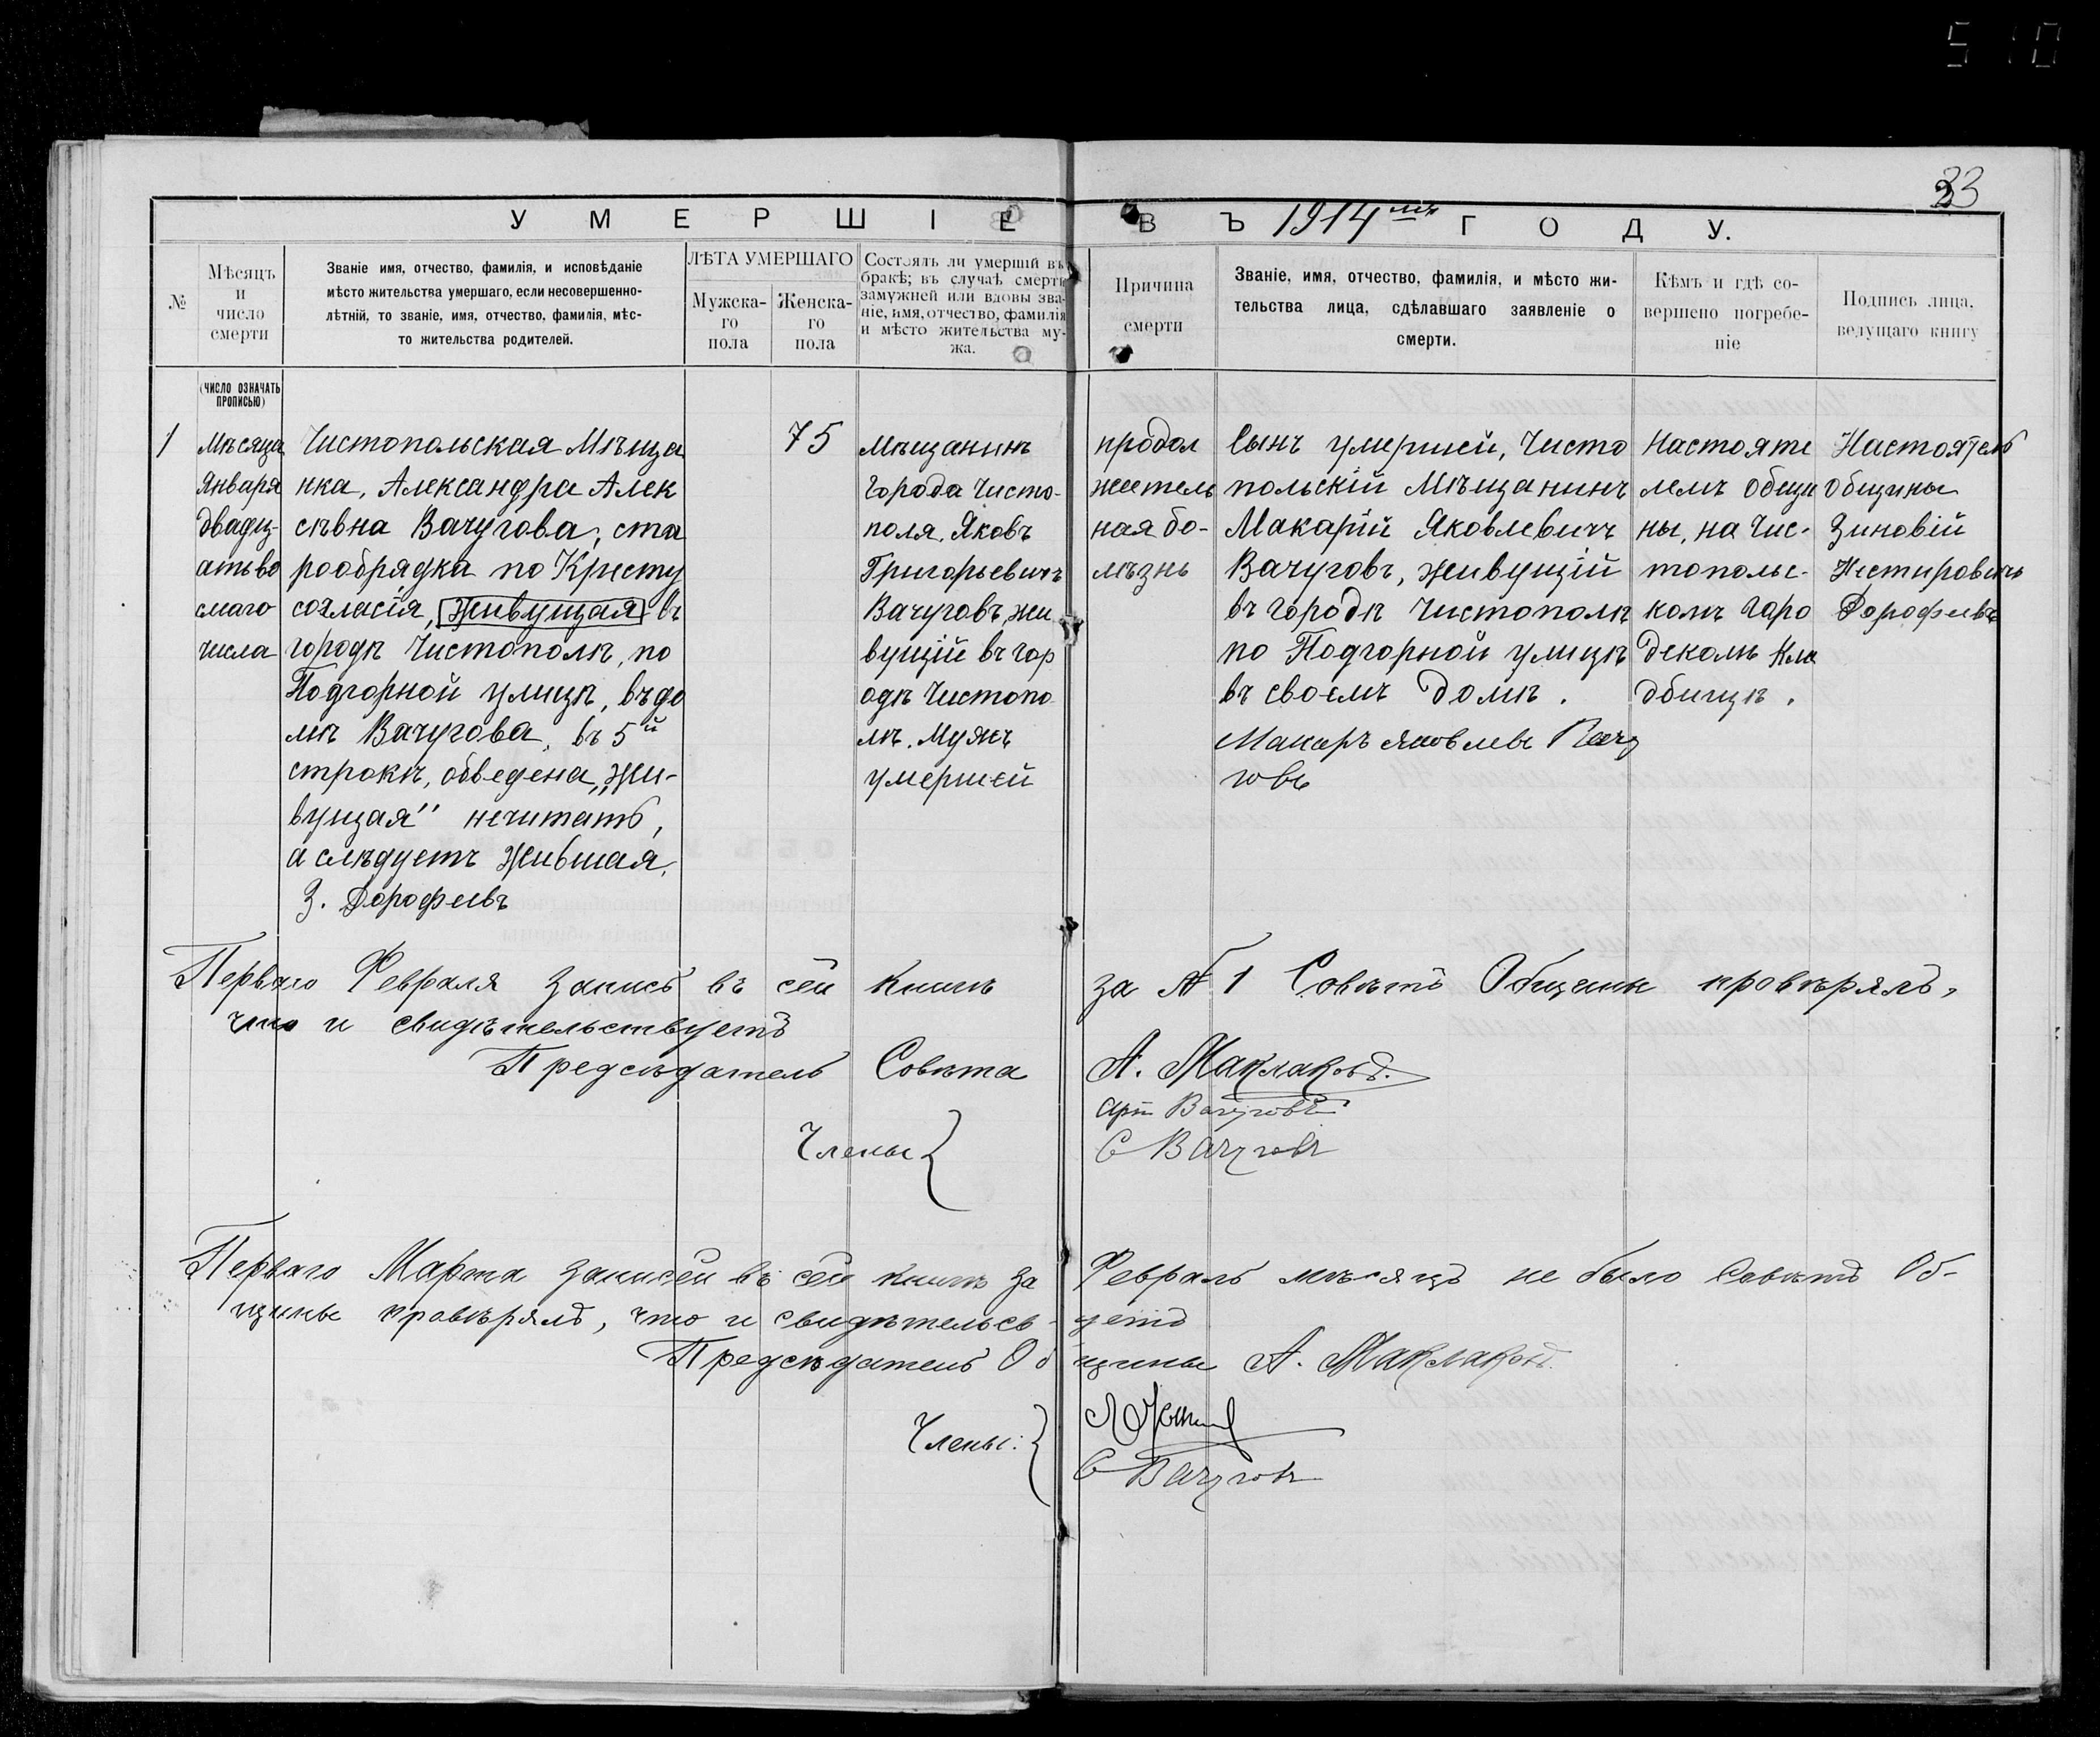 5 10
33
УМЕРШІЕ ВЪ 1914мъ ГОДУ.
№
Мѣсяцъ
и
число
смерти
Званіе имя, отчество, фамилія, и исповѣданіе
мѣсто жительства умершаго, если несовершенно-
лѣтній, то званіе, имя, отчество, фамилія, мѣс-
то жительства родителей.
ЛѢТА УМЕРШАГО
Мужска-
го
пола
Женска-
го
пола
Состоялъ ли умершій въ
бракѣ; въ случаѣ смерти
замужней или вдовы зва-
ніе, имя, отчество, фамилія
и мѣсто жительства му-
жа.
Причина
смерти
Званіе, имя, отчество, фамилія, и мѣсто жи-
тельства лица, сдѣлавшаго заявленіе о
смерти.
Кѣмъ и гдѣ со-
вершено погребе-
ніе
Подпись лица,
ведущаго книгу
(ЧИСЛО ОЗНАЧАТЬ
ПРОПИСЬЮ)
1
Мѣсяца
Января
двадц-
атьво
сьмаго
числа
Чистопольская Мѣща
нка, Александра Алек
сѣвна Вачугова, ста
рообрядка по Кресту
согласія, живущая въ
городѣ Чистополѣ, по
Подгорной улицѣ, въ до
мѣ Вачугова, въ 5й
строкѣ, обведена „жи-
вущая" нечитать,
а слѣдуетъ жившая.
З. Дорофеевъ
75
Мѣщанинъ
города Чисто-
поля, Яковъ
Григорьевичъ
Вачуговъ, жи
вущій въ гор
одѣ Чистопо
лѣ. Мужъ
умершей
продол
жетель
ная бо-
лѣзнь
сынъ умершей, Чисто
польскій Мѣщанинъ
Макарій Яковлевичъ
Вачуговъ, живущій
въ городѣ Чистополѣ
по Подгорной улицѣ
въ своемъ домѣ.
Макаръ Яковлевъ Вачу
говъ
Настояте
лемъ общи
ны, на Чис-
топольс-
комъ горо
дскомъ кла
дбищѣ.
Настоятель
Общины
Зиновій
Нестировичъ
Дорофеевъ
Перваго Февраля запись въ сей книгѣ за № 1 Совѣтъ Общины провѣрялъ,
что и свидѣтельствуетъ
Предсѣдатель Совѣта А. Маклаковъ.
Члены { Арт Вачуговъ
С Вачуговъ
Перваго Марта записей въ сей книгѣ за Февраль мѣсяцъ не было Совѣтъ Об-
щины провѣрялъ, что и свидѣтельсв-уетъ
Предсѣдатель Общины А. Маклаковъ.
Члены: {
С Вачуговъ